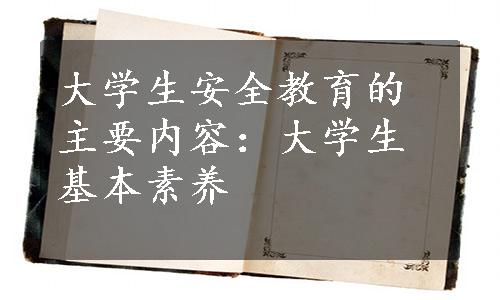 大学生安全教育的
主要内容：大学生
基本素养